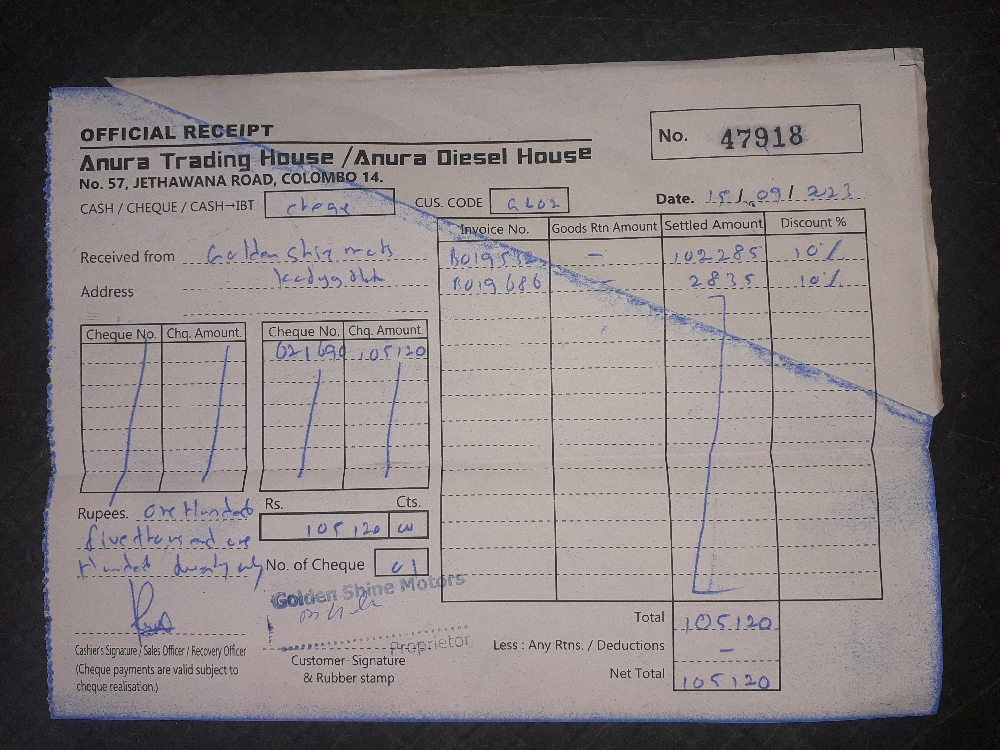 OFFICIAL RECEIPT
No. 47918
Anura Trading House /Anura Diesel House
No. 57, JETHAWANA ROAD, COLOMBO 14.
CASH / CHEQUE / CASH→IBT cheqe
CUS. CODE GL02
Date. 15/09/223
Invoice No. Goods Rtn Amount Settled Amount Discount %
Received from Golden Shin
Address
B019532 – 102285 10%
B019686 – 2835 10%
Cheque No. Chq. Amount. Cheque No. Chq. Amount.
621690 105120
Rupees. One Hundred
five thousand one
Hundred twenty only
Rs. Cts.
105120 00
No. of Cheque 01
Golden Shine Motors
Proprietor
Cashier's Signature / Sales Officer / Recovery Officer
(Cheque payments are valid subject to
cheque realisation.)
Customer Signature
& Rubber stamp
Total 105120
Less : Any Rtns. / Deductions –
Net Total 105120